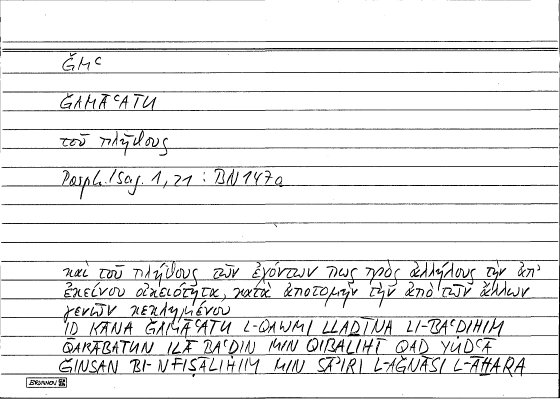 ǦMʿ
ǦAMĀʿATU
τοῦ πλήθους
Porph. Isag. 1, 21 : BN 147a
καὶ τοῦ πλήθους τῶν ἐχόντων πως πρὸς ἀλλήλους τὴν ἀπ'
ἐκείνου οἰκειότητα, κατὰ ἀποτομὴν τὴν ἀπὸ τῶν ἄλλων
γενῶν κεκλημένου
ID KĀNA ǦAMĀʿATU L-QAWMI LLAḎĪNA LI-BAʿḌIHIM
QARĀBATUN ILĀ BAʿḌIN MIN QIBALIHĪ QAD YUDʿĀ
ǦINSAN BI-NFIṢĀLIHIM MIN SĀʾIRI L-AǦNĀSI L-ĀḪARA
BRUNNEN